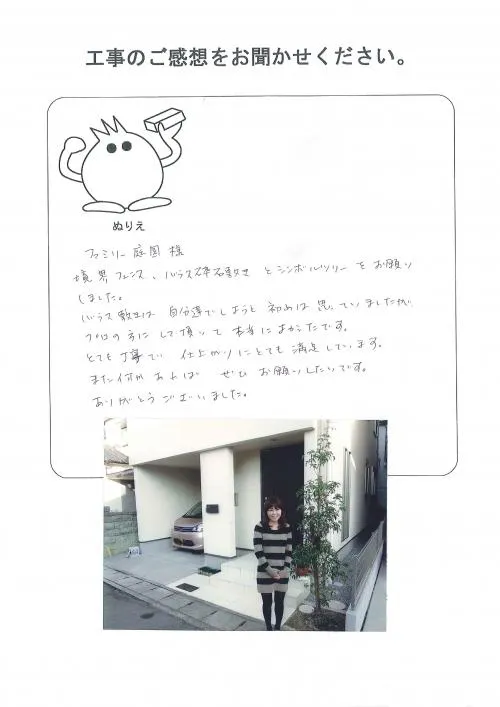 工事のご感想をお聞かせください。
ぬりえ
ファミリー庭園 様
境界フェンス、バラス砕石敷きとシンボルツリーをお願い
しました。
バラス敷きは 自分達でしようと 初めは思っていましたが、
プロの方にして頂いて 本当によかったです。
とても丁寧で 仕上がりにとても満足しています。
また何かあれば ぜひ お願いしたいです。
ありがとうございました。